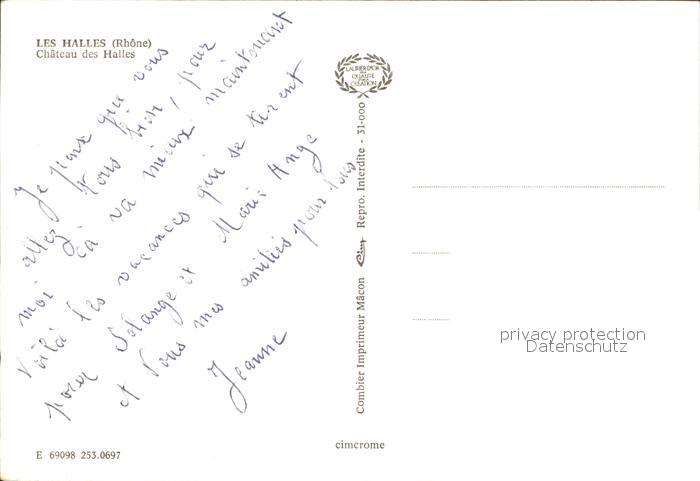 LES HALLES (Rhône)
Château des Halles
Je pense que vous
allez tous bien, pour
moi çà va mieux maintenant
Voilà les vacances qui se tirent
pour Solange et Marie Ange
et vous mes amitiés pour tous
Jeanne
E 69098 253.0697
LAURIER D'OR
DE LA
QUALITÉ
CRÉATION
Combier Imprimeur Mâcon Cim Repro. Interdite - 31-000
cimcrome
privacy protection
Datenschutz